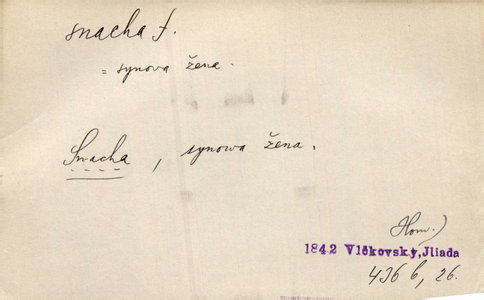 snacha f.
= synova žena.
Snacha, synowa žena.
Hom.)
1842 Vlčkovský, Jliada
436 b, 26.